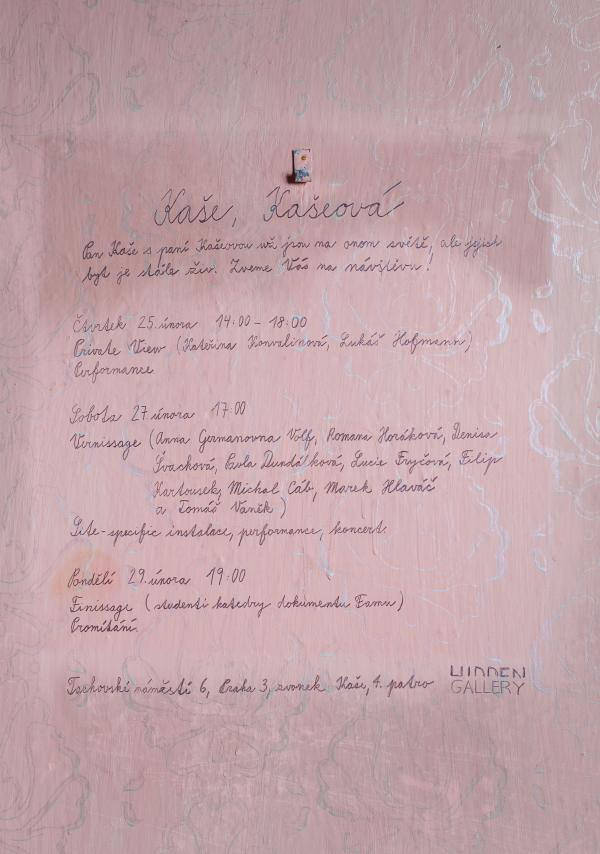 Kaše, Kašeová
Pan Kaše s paní Kašeovou už jsou na onom světě, ale jejich
byt je stále živ. Zveme Vás na návštěvu!
Čtvrtek 25. února 14:00 - 18:00
Private View (Kateřina Konvalinová, Lukáš Hofmann)
Performance
Sobota 27. února 17:00
Vernissage (Anna Germanovna Volf, Romana Horáková, Denisa
Švachová, Pavla Dundálková, Lucie Fryčová, Filip
Kartousek, Michal Cáb, Marek Hlaváč
a Tomáš Vaněk)
Site-specific instalace, performance, koncert.
Pondělí 29. února 19:00
Finissage (studenti katedry dokumentu Famu)
Promítání.
Tachovské náměstí 6, Praha 3, zvonek Kaše, 4. patro
HIDDEN
GALLERY